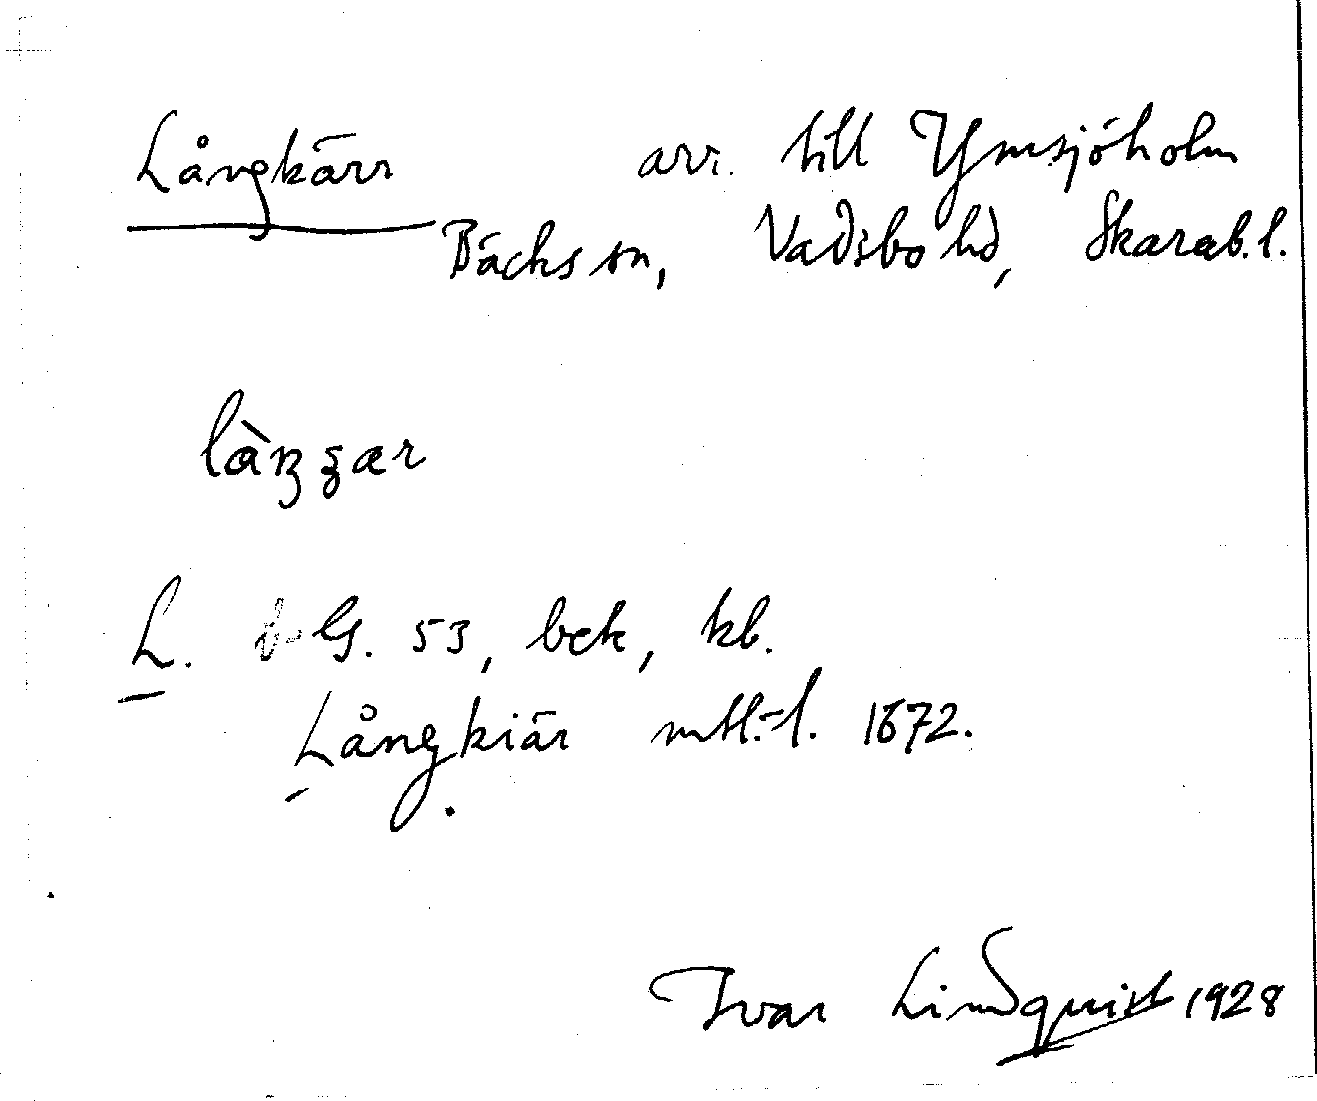 Långkärr arr. till Ymsjöholm
Bäcks sn, Vadsbo hd, Skarab. l.
L. G. 53, bek, kb.
Långkiär mtl.-l. 1672.
Ivar Lindquist 1928